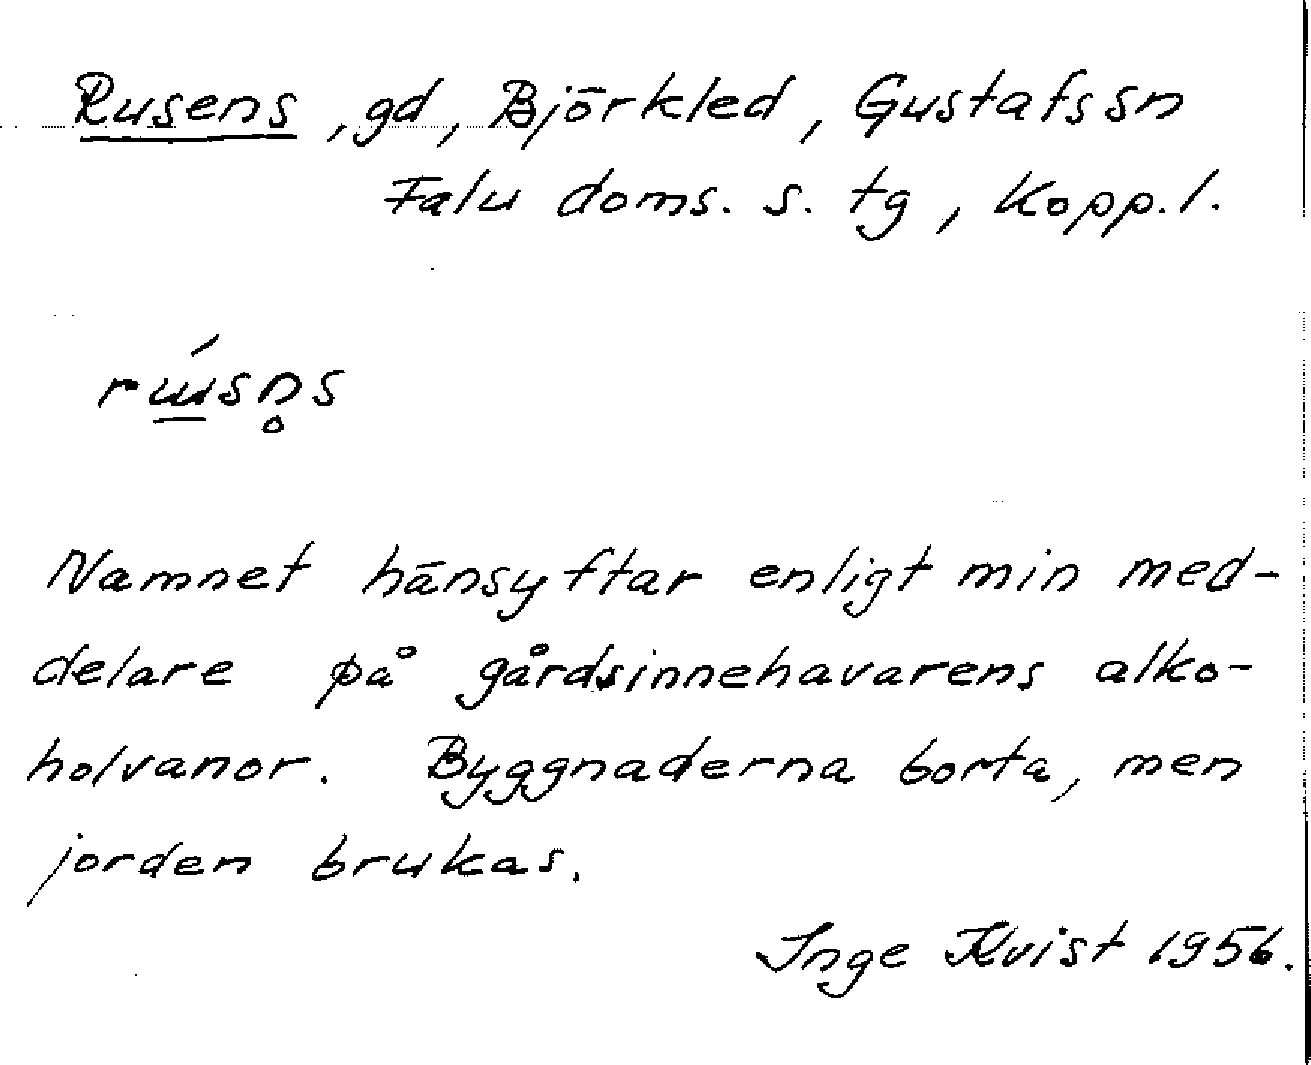 Rusens, gd, Björkled, Gustafssn
Falu doms. s. tg, Kopp. l.
rɯ́sn̥s
Namnet hänsyftar enligt min med-
delare på gårdsinnehavarens alko-
holvanor. Byggnaderna borta, men
jorden brukas.
Inge Kvist 1956.